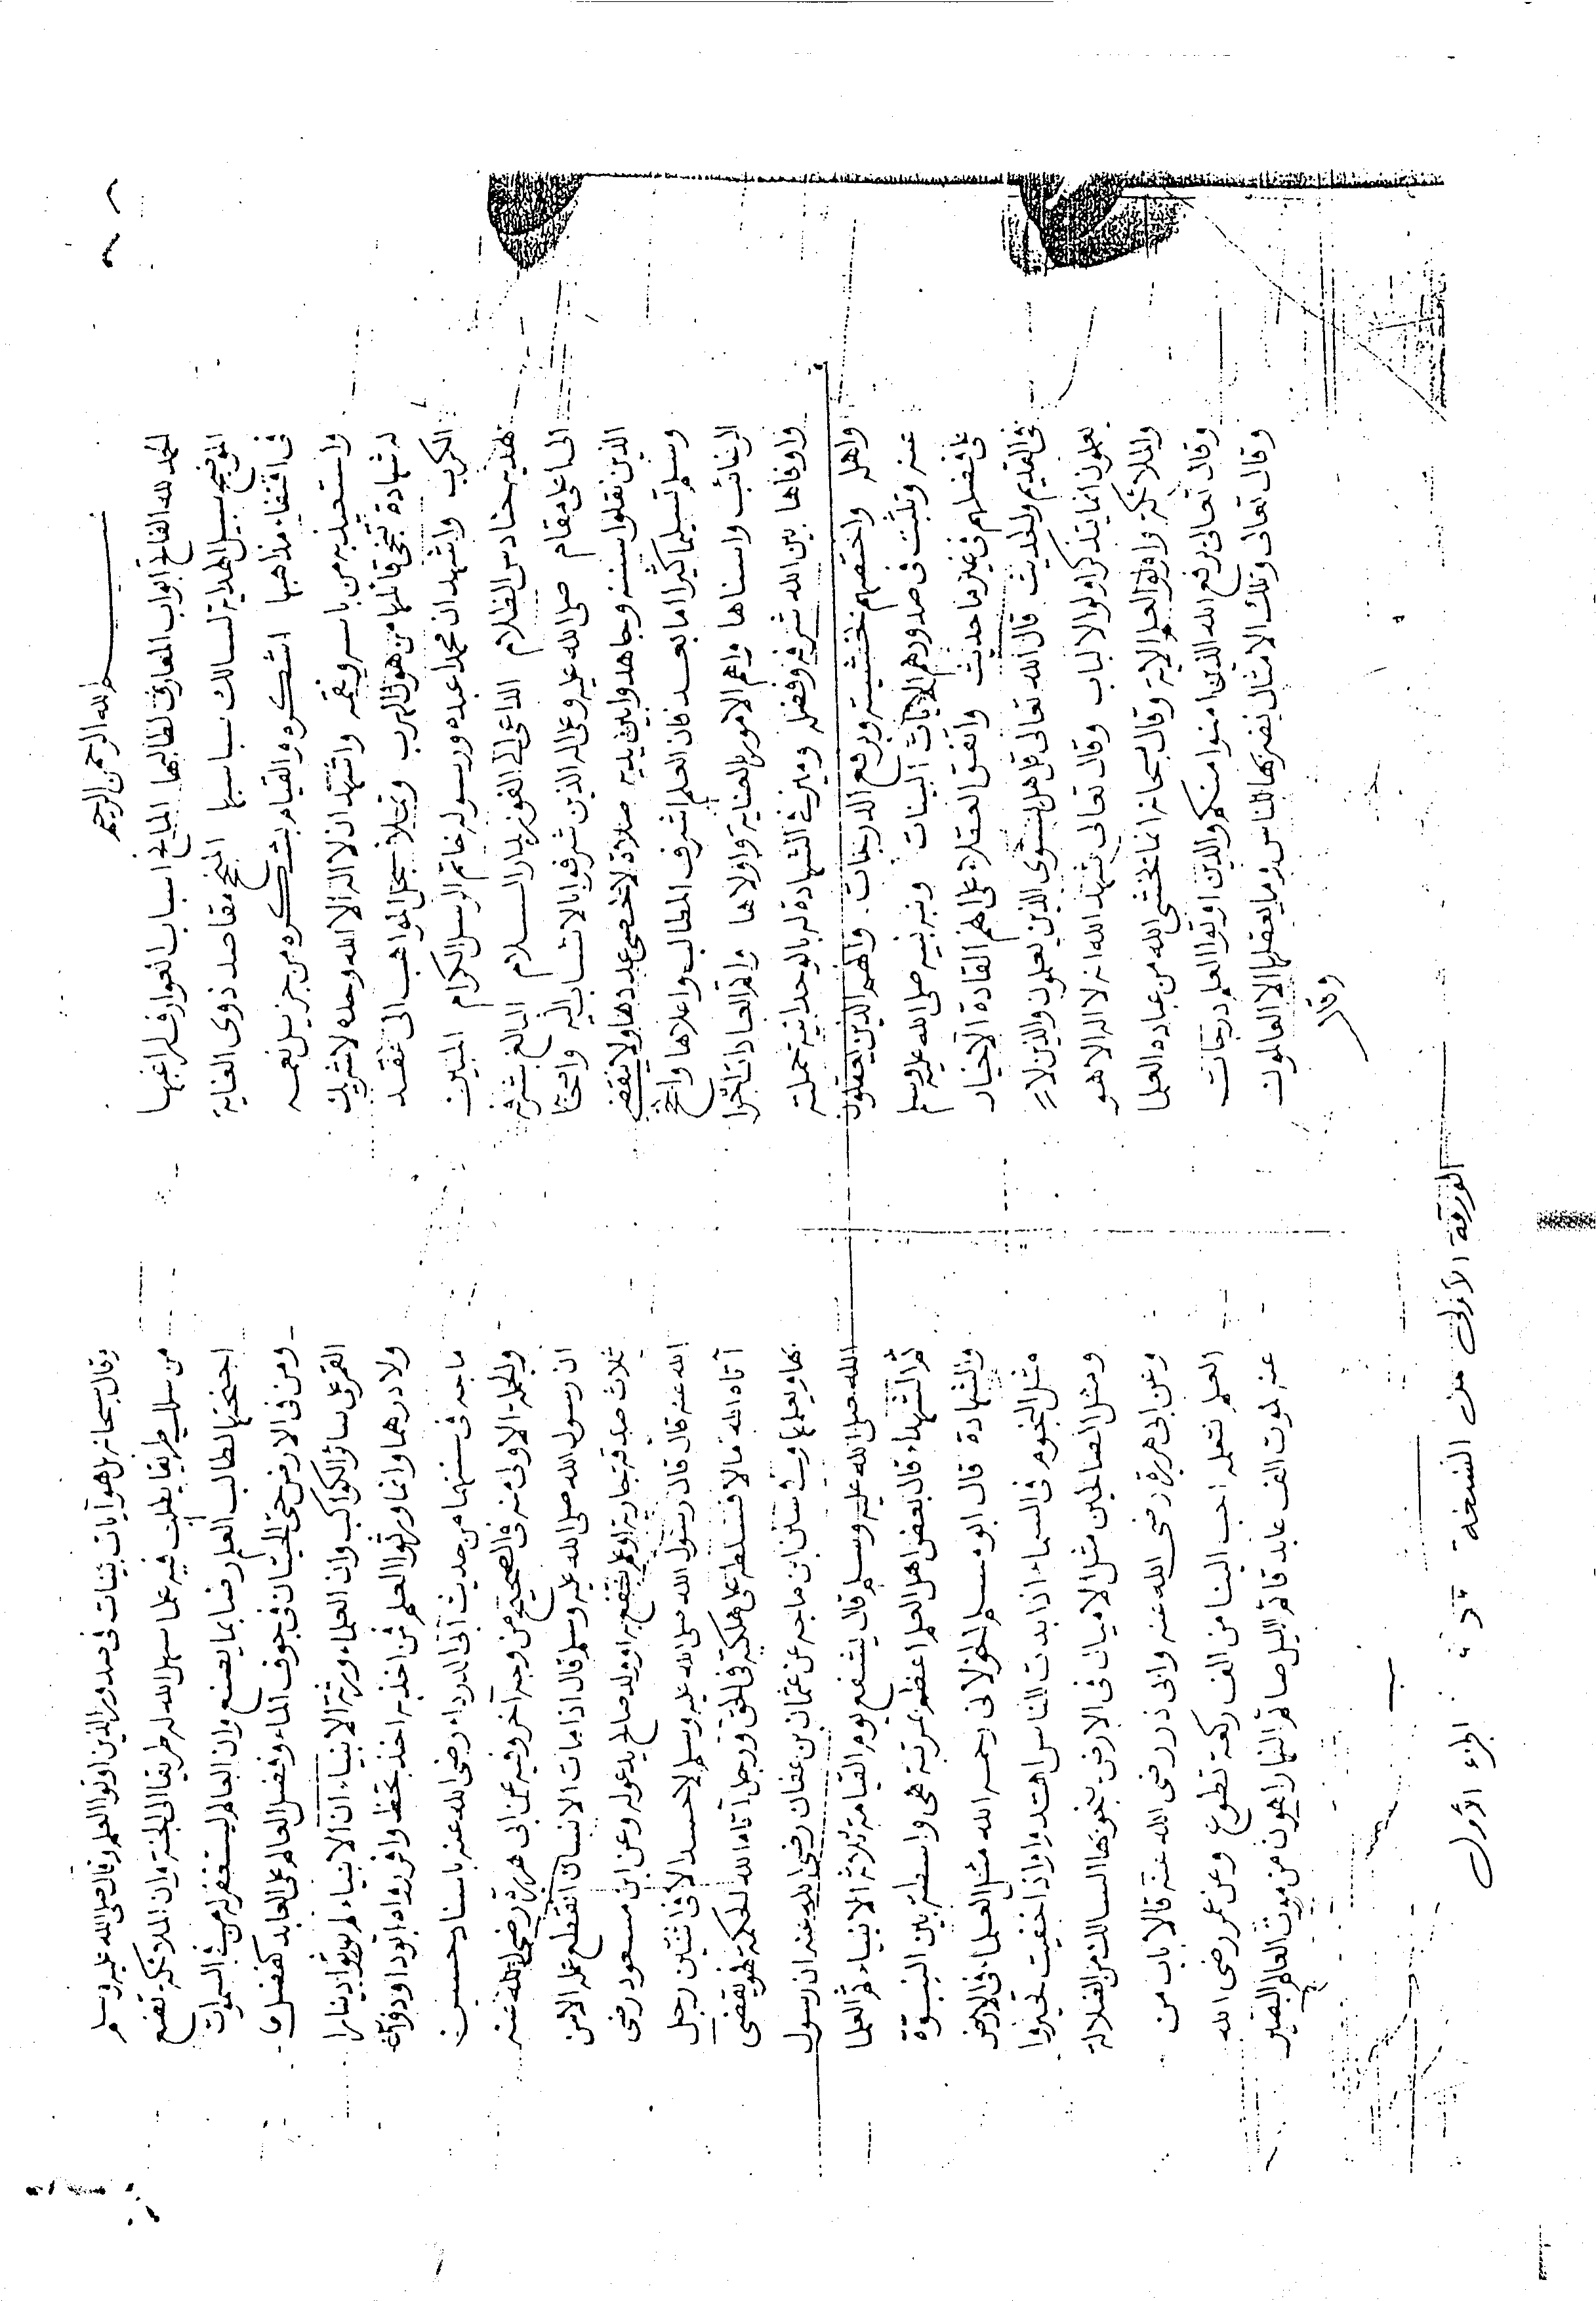 بسم الله الرحمن الرحيم
الحمد لله الفاتح ابواب المعارف لطالبها المانح اسباب العوارف لراغبها
الموضح سبيل الهداية لسالك سباسبها المنجح مقاصد ذوى العناية
فى اقتفاء مذاهبها اشكره والقيام بشكره من جزيل نعمه
واستعيذ به من باسه ونقمه واشهد ان لا اله الا الله وحده لا شريك
له شهادة تنجى قائلها من هول الهرب وتملأ سجل المواهب الى عقد
الكرب واشهد ان محمدا عبده ورسوله خاتم الرسل الكرام المبين
بهديه حنادس الظلام الداعى الى الفوز بدار السلام البالغ بشرفه
الى اعلى مقام صلى الله عليه وعلى اله الذين شرفوا بالانتساب اليه واصحابه
الذين نقلوا سننه وجاهدوا بين يديه صلاة لا تحصى عددها ولا ينقضى
وسلم تسليما كثيرا اما بعد فان العلم اشرف المطالب واعلاها وانجح
الرغائب واسناها واهم الامور بالعناية واولاها واتم العبادات اجرا
واوفاها بين الله شرفه وفضله وميز فى الشهادة له بالوحدانية حملته
واهله واختصهم بخشيته وبرفع الدرجات وانهم الذين يعقلون
عنه وتثبت فى صدورهم الآيات البينات ونبه نبيه صلى الله عليه وسلم
على فضلهم فى غير ما حديث واتفق العقلاء على انهم القادة الاخيار
فى القديم والحديث قال الله تعالى قل هل يستوى الذين يعلمون والذين لا
يعلمون انما يتذكر اولوا الالباب وقال تعالى شهد الله انه لا اله الا هو
والملائكة واولوا العلم الآية وقال سبحانه انما يخشى الله من عباده العلما
وقال تعالى يرفع الله الذين امنوا منكم والذين اوتوا العلم درجات
وقال تعالى وتلك الامثال نضربها للناس وما يعقلها الا العالمون
وقال
وقال سبحانه بل هو آيات بينات فى صدور الذين اوتوا العلم وقال صلى الله عليه وسلم
من سلك طريقا يطلب فيه علما سهل الله له طريقا الى الجنة وان الملائكة تضع
اجنحتها لطالب العلم رضا بما يصنع وان العالم ليستغفر له من فى السموات
ومن فى الارض حتى الحيتان فى جوف الماء وفضل العالم على العابد كفضل
القمر على سائر الكواكب وان العلماء ورثة الانبياء ان الانبياء لم يورثوا دينارا
ولا درهما وانما ورثوا العلم فمن اخذ به اخذ بحظ وافر رواه ابو داود وابن
ماجه فى سننهما من حديث ابى الدرداء رضى الله عنه باسناد حسن
والجملة الاولى منه فى الصحيح من وجه آخر وفيه عن ابى هريرة رضى الله عنه
ان رسول الله صلى الله عليه وسلم قال اذا مات الانسان انقطع عمله الا من
ثلاث صدقة جارية او علم ينتفع به او ولد صالح يدعو له وعن ابن مسعود رضى
الله عنه قال قال رسول الله صلى الله عليه وسلم لا حسد الا فى اثنتين رجل
آتاه الله مالا فسلطه على هلكته فى الحق ورجل آتاه الله الحكمة فهو يقضى
بها ويعلمها وفى سنن ابن ماجه عن عثمان بن عفان رضى الله عنه ان رسول
الله صلى الله عليه وسلم قال يشفع يوم القيامة ثلاثة الانبياء ثم العلما
ثم الشهداء قال بعض اهل العلم اعظم بمرتبة هى واسطة بين النبوة
والشهادة قال ابو مسلم الخولانى رحمه الله مثل العلماء فى الارض
مثل النجوم فى السماء اذا بدت للناس اهتدوا واذا خفيت تحيروا
ومثل الصالحين مثل الاميال فى الارض ينجو بها السالك من الضلالة
وعن ابى هريرة رضى الله عنه وابى ذر رضى الله عنه قالا باب من
العلم نتعلمه احب الينا من الف ركعة تطوع وعن عمر رضى الله
عنه لموت الف عابد قائم الليل صائم النهار اهون من موت العالم البصير
الورقة الأولى من النسخة الجزء الأول